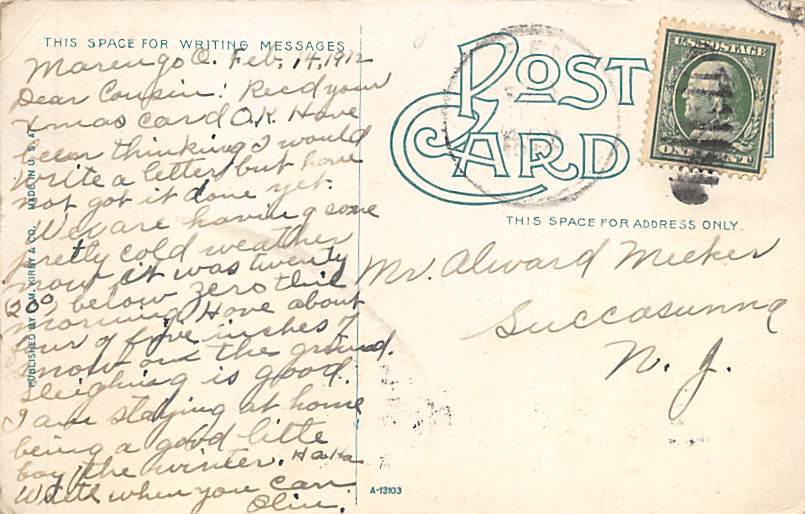 THIS SPACE FOR WRITING MESSAGES
Marengo O. Feb, 14, 1912
Dear Cousin: Recd your
Xmas card O.K. Have
been thinking I would
write a letter but have
not got it done yet.
We are having some
pretty cold weather
now it was twenty
(20°) below zero this
morning Have about
four or five inches of
snow on the ground.
sleighing is good.
I am staying at home
being a good litte
boy this winter. Ha Ha
Write when you can.
Olin.
PUBLISHED BY M. KIRBY & CO. MADE IN U.S.A.
POST
CARD
U.S. POSTAGE
ONE CENT
THIS SPACE FOR ADDRESS ONLY.
Mr. Alward Meeker
Succasunna
N. J.
A-13103